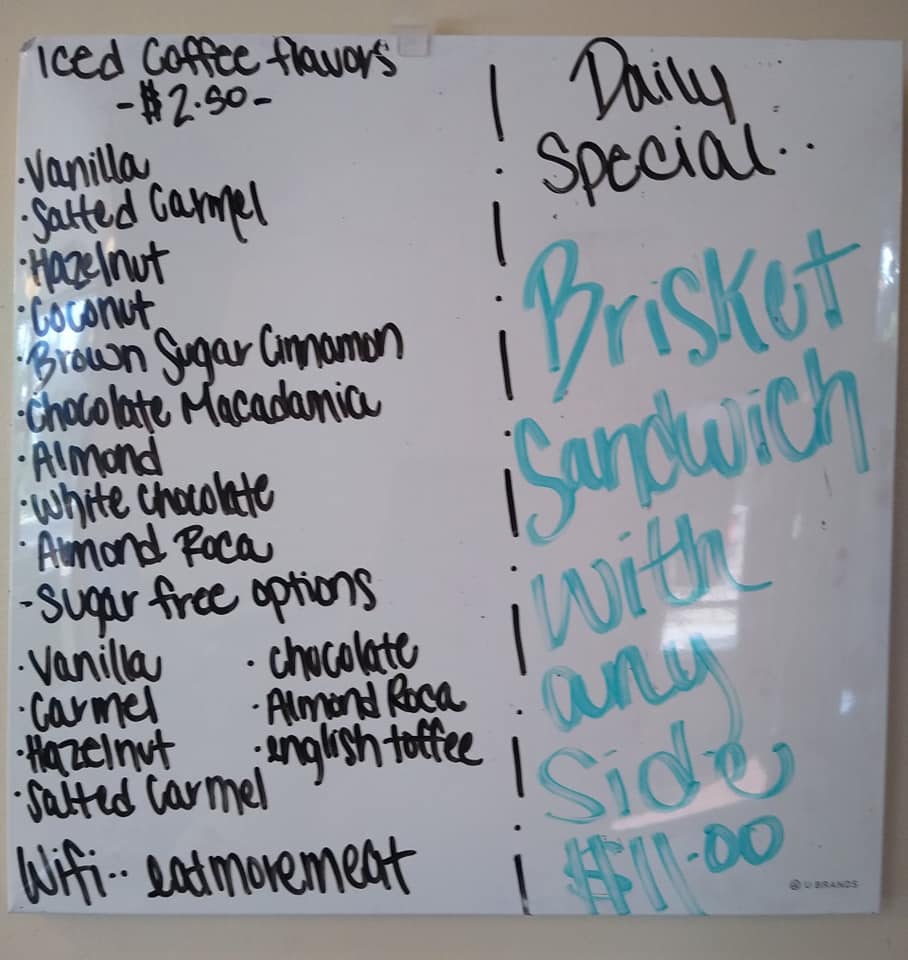 Iced Coffee flavors
-$2.50-
·Vanilla
·Salted Carmel
·Hazelnut
·Coconut
·Brown Sugar Cinnamon
·Chocolate Macadamia
·Almond
·White chocolate
·Almond Roca
-Sugar free options
·Vanilla ·chocolate
·Carmel ·Almond Roca
·Hazelnut ·english toffee
·Salted Carmel
Wifi·· eatmoremeat
Daily
Special··
Brisket
Sandwich
with
any
Side
$11.00
U BRANDS